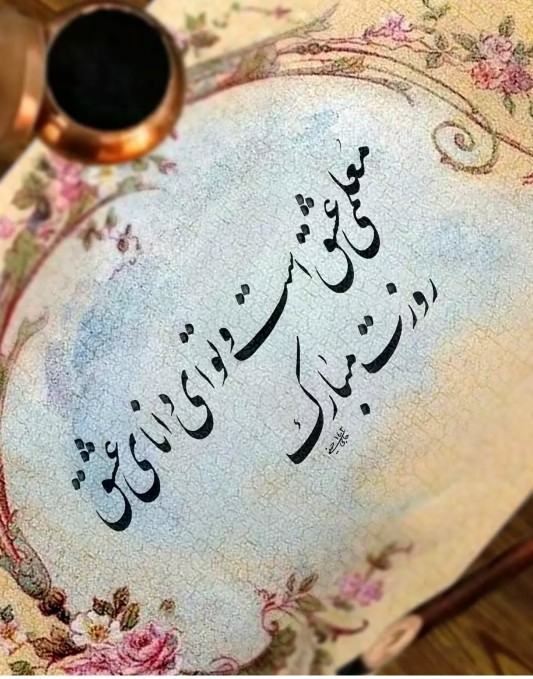 معلمی عشق است و تو ای دانای عشق
روزت مبارک